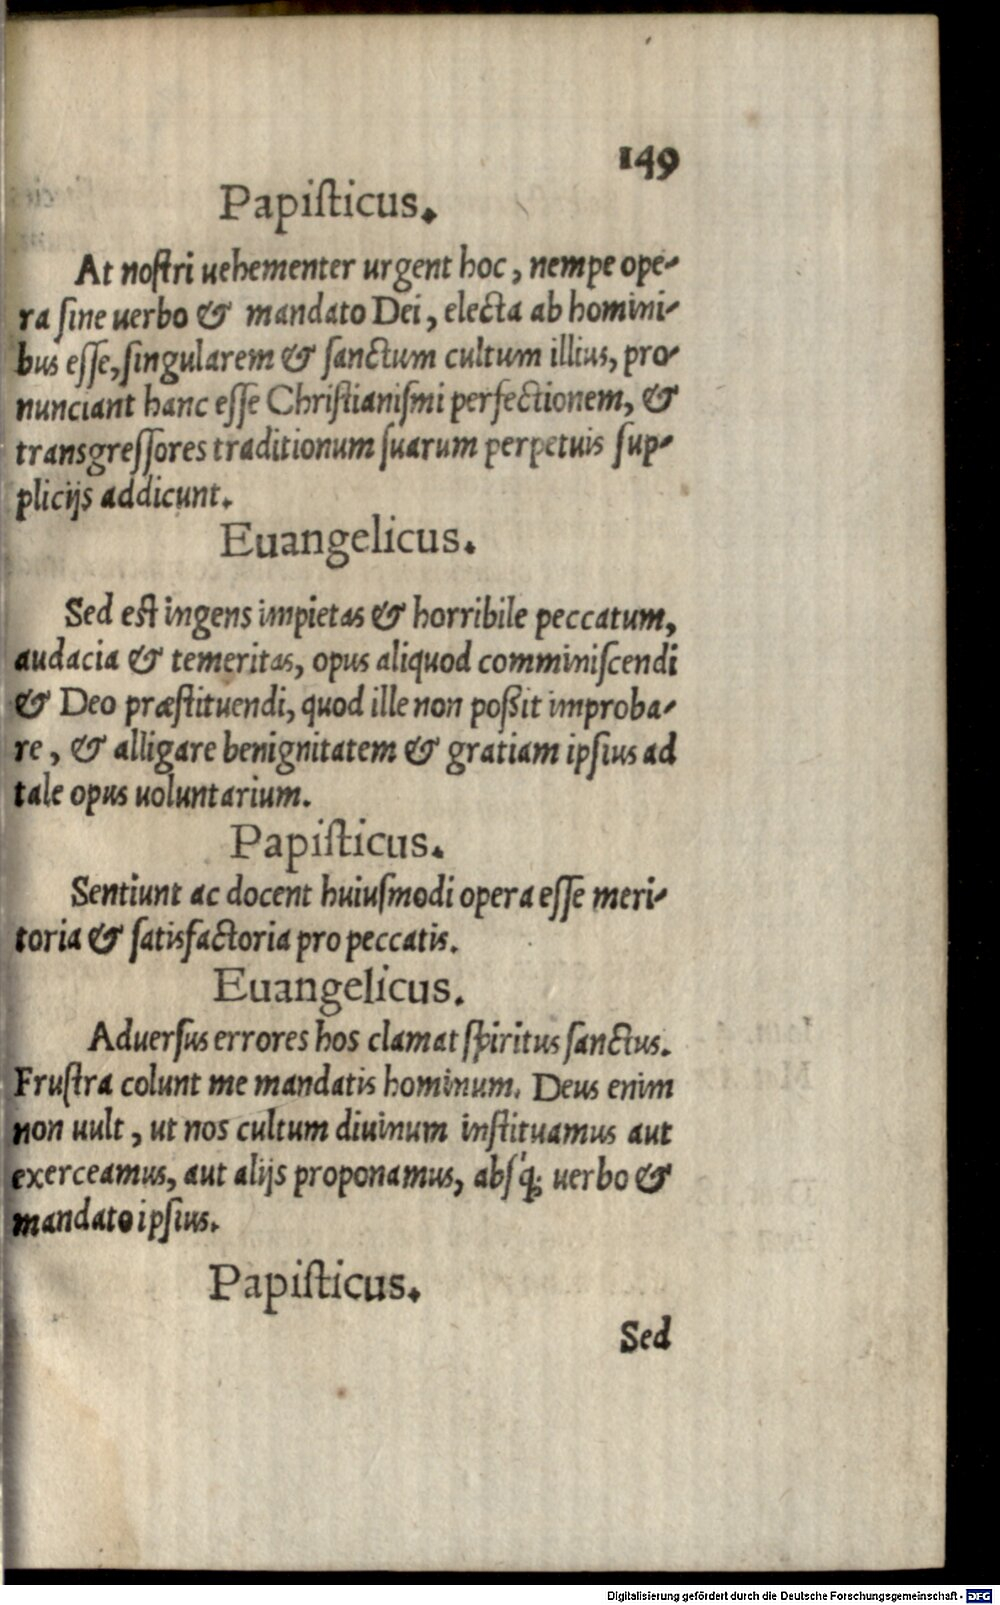 149
Papiſticus.
At noſtri uehementer urgent hoc, nempe ope-
ra ſine uerbo & mandato Dei, electa ab homini-
bus eſſe, ſingularem & ſanctum cultum illius, pro-
nunciant hanc eſſe Chriſtianiſmi perfectionem, &
transgreſſores traditionum ſuarum perpetuis ſup-
plicijs addicunt.
Euangelicus.
Sed eſt ingens impietas & horribile peccatum,
audacia & temeritas, opus aliquod comminiſcendi
& Deo præſtituendi, quod ille non poßit improba-
re, & alligare benignitatem & gratiam ipſius ad
tale opus uoluntarium.
Papiſticus.
Sentiunt ac docent huiuſmodi opera eſſe meri-
toria & ſatisfactoria pro peccatis.
Euangelicus.
Aduerſus errores hos clamat ſpiritus ſanctus.
Fruſtra colunt me mandatis hominum. Deus enim
non uult, ut nos cultum diuinum inſtituamus aut
exerceamus, aut alijs proponamus, abſq́; uerbo &
mandato ipſius.
Papiſticus.
Sed
Digitalisierung gefördert durch die Deutsche Forschungsgemeinschaft - DFG